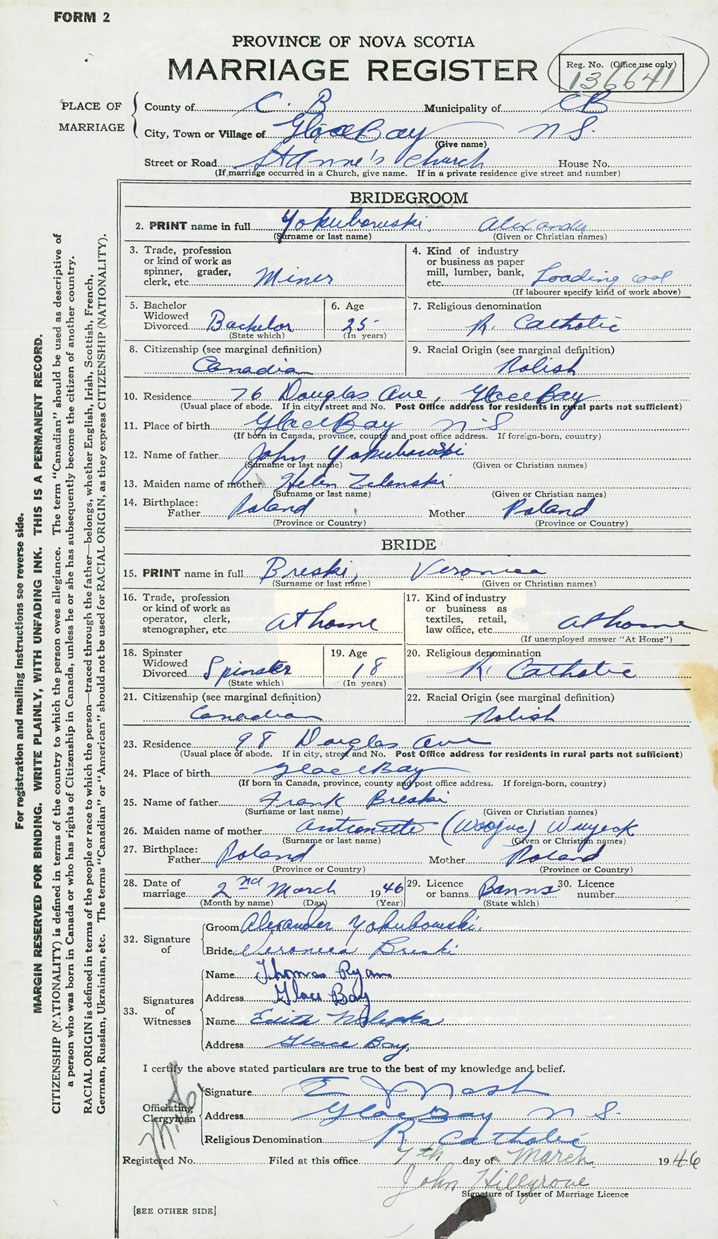 FORM 2
PROVINCE OF NOVA SCOTIA
MARRIAGE REGISTER
Reg. No. (Office use only)
136641
PLACE OF MARRIAGE
County of C. B Municipality of CB
City, Town or Village of Glace Bay N S.
(Give name)
Street or Road St Anne's Church House No.
(If marriage occurred in a Church, give name. If in a private residence give street and number)
BRIDEGROOM
2. PRINT name in full Yokubowski,
(Surname or last name) (Given or Christian names)
3. Trade, profession or kind of work as spinner, grader, clerk, etc. Miner
4. Kind of industry or business as paper mill, lumber, bank, etc. Loading coal
(If labourer specify kind of work above)
5. Bachelor Widowed Divorced Bachelor
(State which)
6. Age 25
(In years)
7. Religious denomination R. Catholic
8. Citizenship (see marginal definition) Canadian
9. Racial Origin (see marginal definition) Polish
10. Residence 76 Douglas Ave, Glace Bay
(Usual place of abode. If in city street and No. Post Office address for residents in rural parts not sufficient)
11. Place of birth Glace Bay N-S
(If born in Canada, province, county and post office address. If foreign-born, country)
12. Name of father John Yokubowski
(Surname or last name) (Given or Christian names)
13. Maiden name of mother Helen Zelenski
(Surname or last name) (Given or Christian names)
14. Birthplace: Father Poland Mother Poland
(Province or Country) (Province or Country)
BRIDE
15. PRINT name in full Breski, Veronica
(Surname or last name) (Given or Christian names)
16. Trade, profession or kind of work as operator, clerk, stenographer, etc. At home
17. Kind of industry or business as textiles, retail, law office, etc. At home
(If unemployed answer "At Home")
18. Spinster Widowed Divorced Spinster
(State which)
19. Age 18
(In years)
20. Religious denomination R. Catholic
21. Citizenship (see marginal definition) Canadian
22. Racial Origin (see marginal definition) Polish
23. Residence 98 Douglas Ave
(Usual place of abode. If in city, street and No. Post Office address for residents in rural parts not sufficient)
24. Place of birth Glace Bay
(If born in Canada, province, county or post office address. If foreign-born, country)
25. Name of father Frank Breski
(Surname or last name) (Given or Christian names)
26. Maiden name of mother Antionette
(Surname or last name) (Given or Christian names)
27. Birthplace: Father Poland Mother Poland
(Province or Country) (Province or Country)
28. Date of marriage 2nd March 1946
(Month by name) (Day) (Year)
29. Licence or banns Banns
(State which)
30. Licence number
32. Signature of
Groom Alexander Yokubowski.
Bride Veronica Breski
33. Signatures of Witnesses
Name Thomas Ryan
Address Glace Bay
Name Edith
Address Glace Bay,
I certify the above stated particulars are true to the best of my knowledge and belief.
Officiating Clergyman
Signature E J Nash
Address Glace Bay N S.
Religious Denomination R Catholic
Registered No. Filed at this office 7th day of March 1946
John Hillgrove
Signature of Issuer of Marriage Licence
[SEE OTHER SIDE]
For registration and mailing instructions see reverse side.
MARGIN RESERVED FOR BINDING. WRITE PLAINLY, WITH UNFADING INK. THIS IS A PERMANENT RECORD.
CITIZENSHIP (NATIONALITY) is defined in terms of the country to which the person owes allegiance. The term "Canadian" should be used as descriptive of
a person who was born in Canada or who has rights of Citizenship in Canada, unless he or she has subsequently become the citizen of another country.
RACIAL ORIGIN is defined in terms of the people or race to which the person—traced through the father—belongs, whether English, Irish, Scottish, French,
German, Russian, Ukrainian, etc. The terms "Canadian" or "American" should not be used for RACIAL ORIGIN, as they express CITIZENSHIP (NATIONALITY).